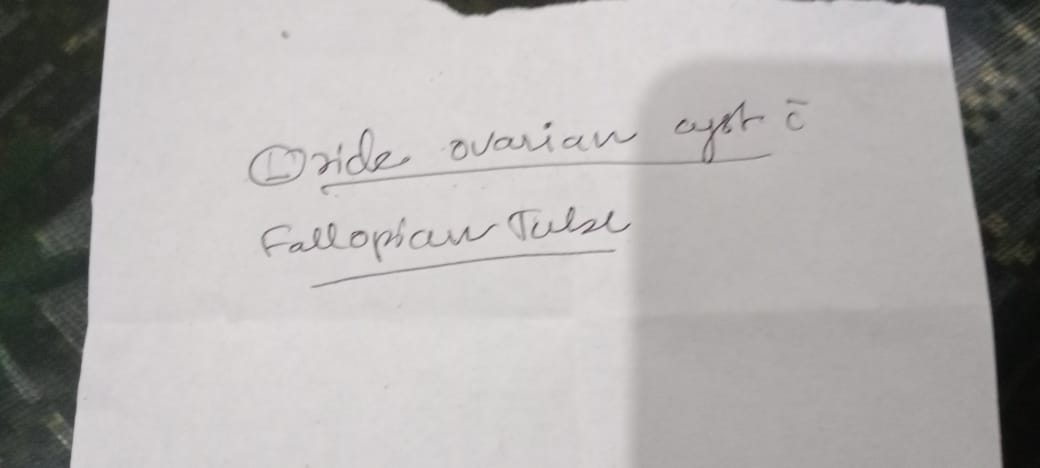 Ⓛ side ovarian cyst c̄
Fallopian Tube